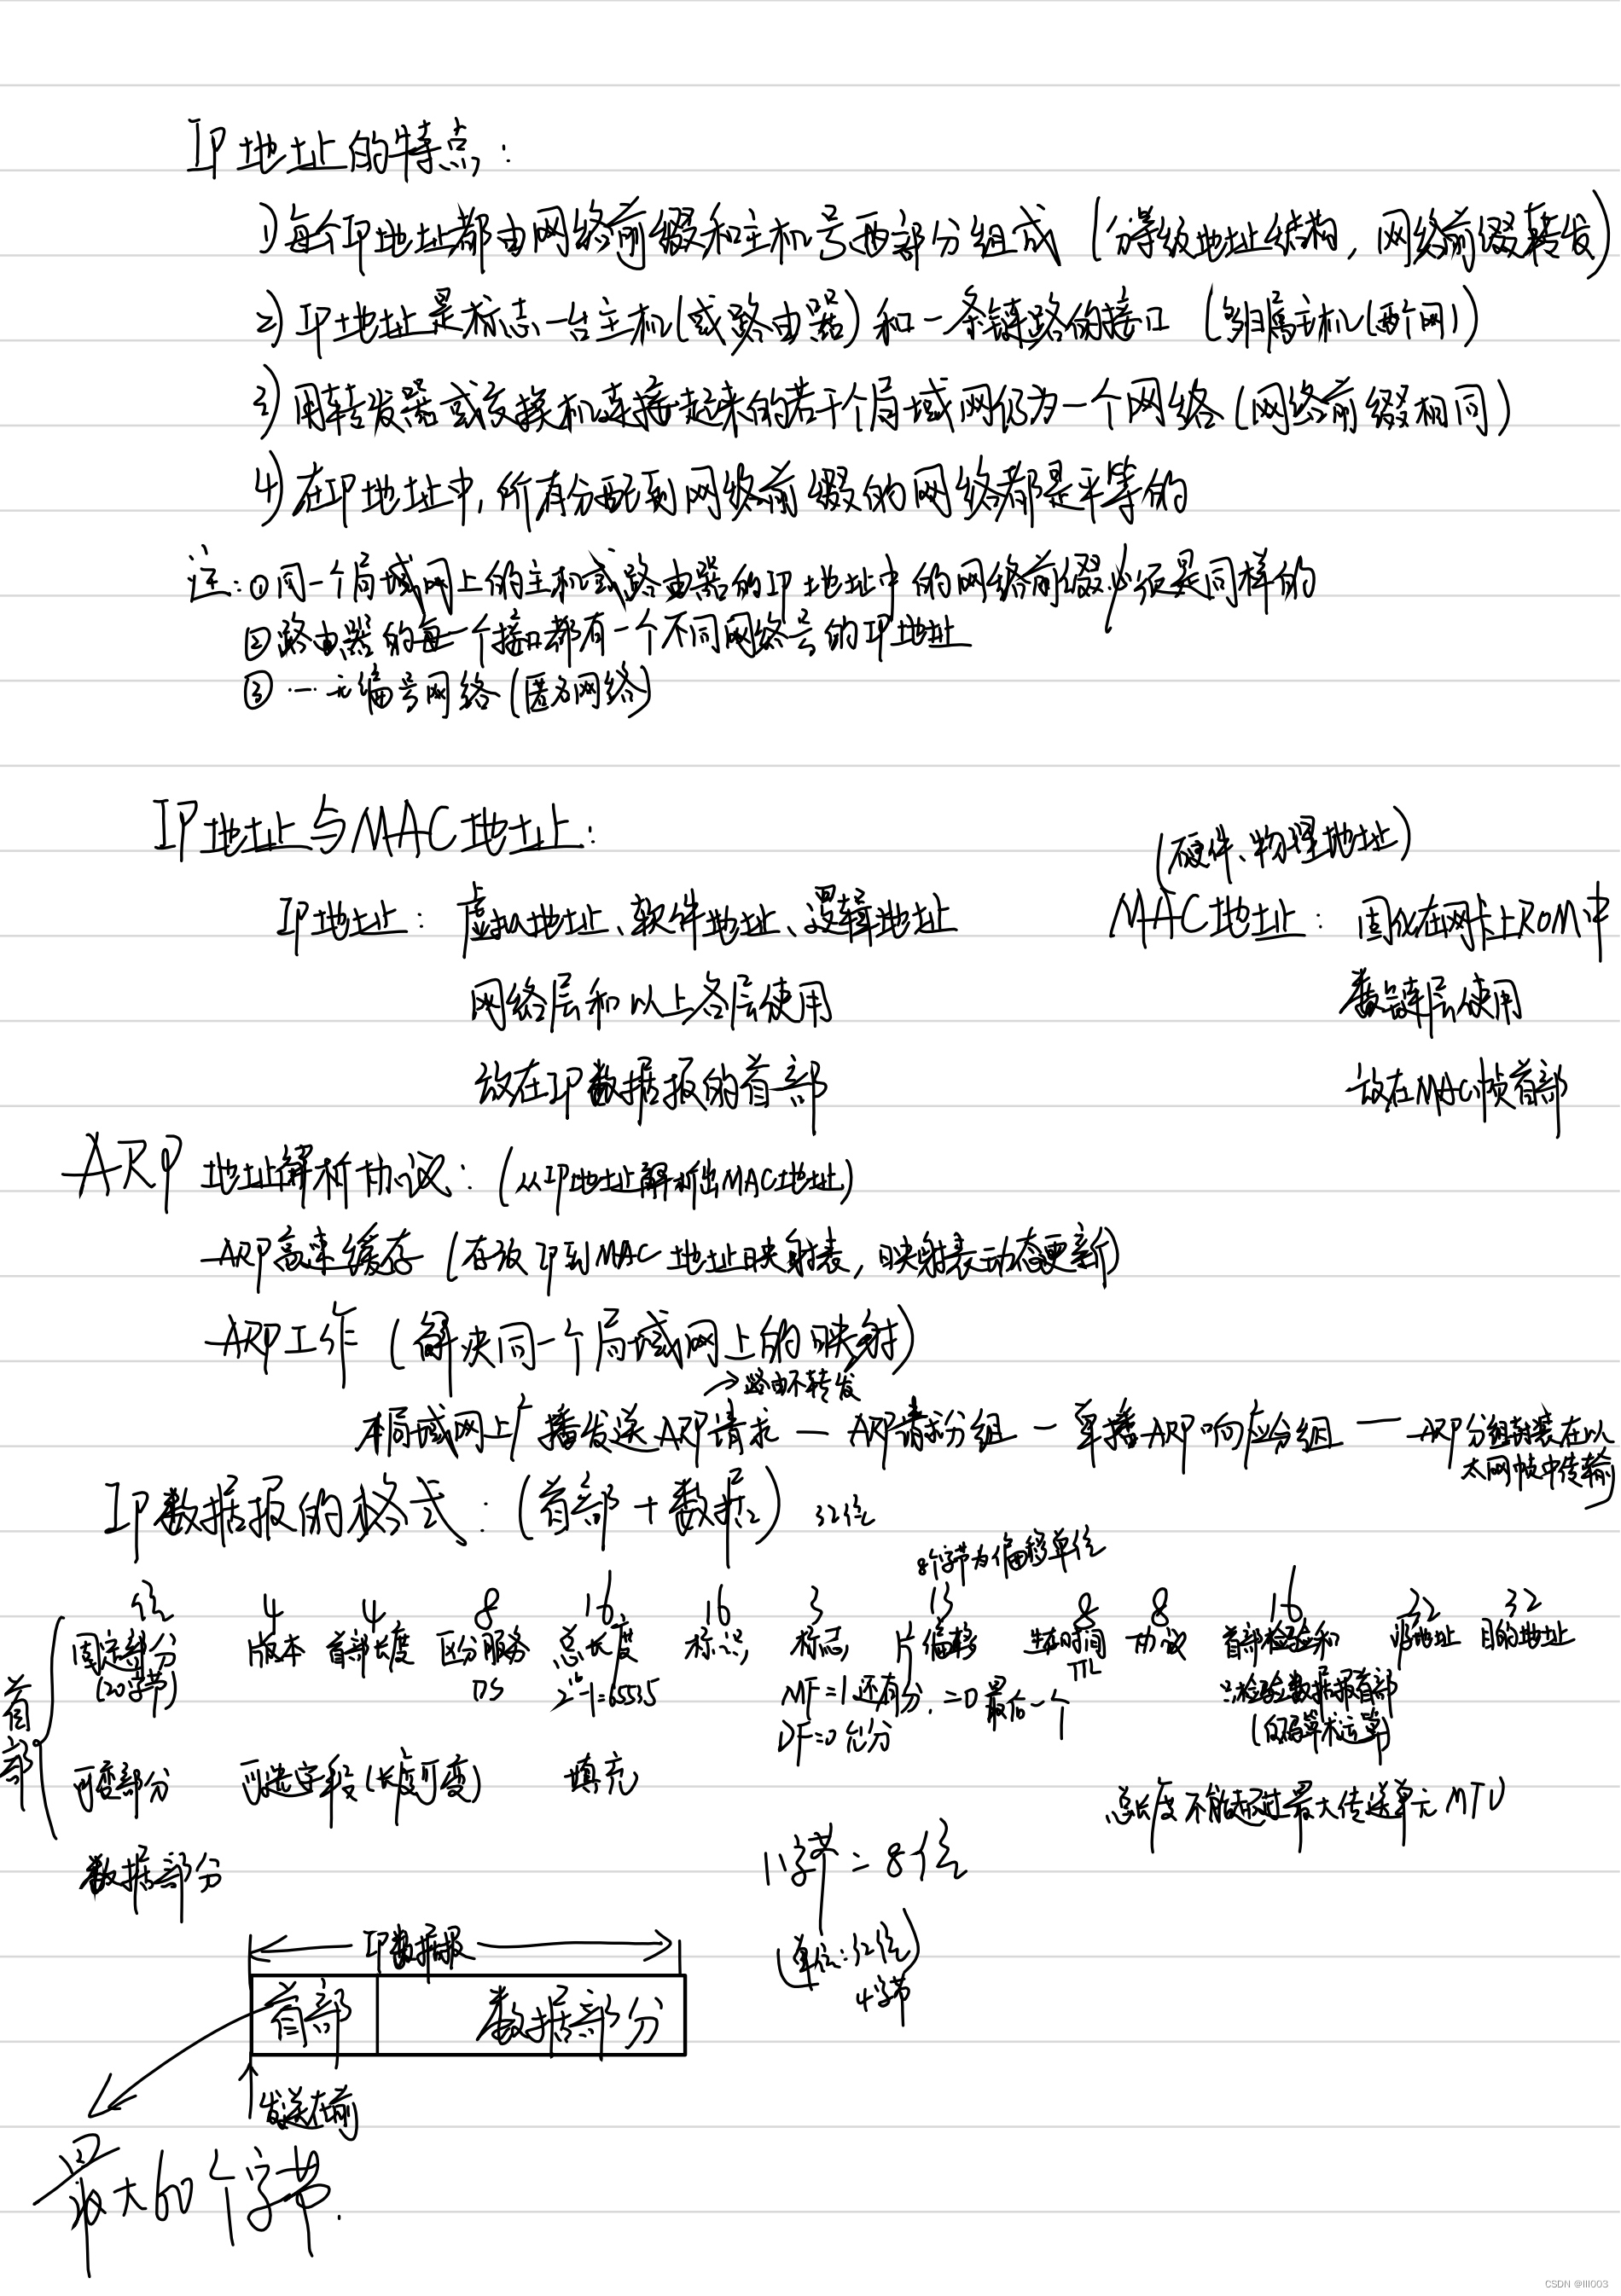 IP地址的特点:
1)每个IP地址都由网络前缀和主机号两部分组成 (分等级地址结构,网络前缀转发)
2)IP地址是标志一台主机(或路由器)和一条链路的接口 (多归属主机(两个网))
3)用转发器或交换机连接起来的若干个局域网仍为一个网络(网络前缀相同)
4)在IP地址中,所有分配到网络前缀的网络都是平等的
注:①同一个局域网上的主机或路由器的IP地址中的网络前缀必须是同样的
②路由器的每一个接口都有一个不同网络号的IP地址
③…无编号网络(匿名网络)
IP地址与MAC地址:
(硬件、物理地址)
IP地址: 虚拟地址、软件地址、逻辑地址 MAC地址: 固化在网卡上ROM中
网络层和以上各层使用 数链层使用
放在IP数据报的首部 放在MAC帧首部
ARP 地址解析协议:(从IP地址解析出MAC地址)
ARP高速缓存 (存放IP到MAC地址映射表,映射表动态更新)
ARP工作 (解决同一个局域网上的映射)
→路由不转发
本局域网上广播发送ARP请求 — ARP请求分组 — 单播ARP响应分组 — ARP分组封装在以
太网帧中传输
IP数据报的格式:(首部+数据) 32位
8个字节为偏移单位
位 4 4 8 16 16 3 13 8 8 16 32 32
固定部分 版本 首部长度 区分服务 总长度 标识 标志 片偏移 生存时间 协议 首部检验和 源地址 目的地址
(20字节) DS 2^16-1=65535 MF=1还有分,=0最后一个 TTL 只检验数据报首部
DF=0允分 (反码算术运算)
首部
可变部分 可选字段(长度可变) 填充
总长度不能超过最大传送单元MTU
数据部分
1字节=8位
IP数据报
(单位:32位)
4字节
首部 数据部分
发送在前
最大60个字节.
CSDN @lll003